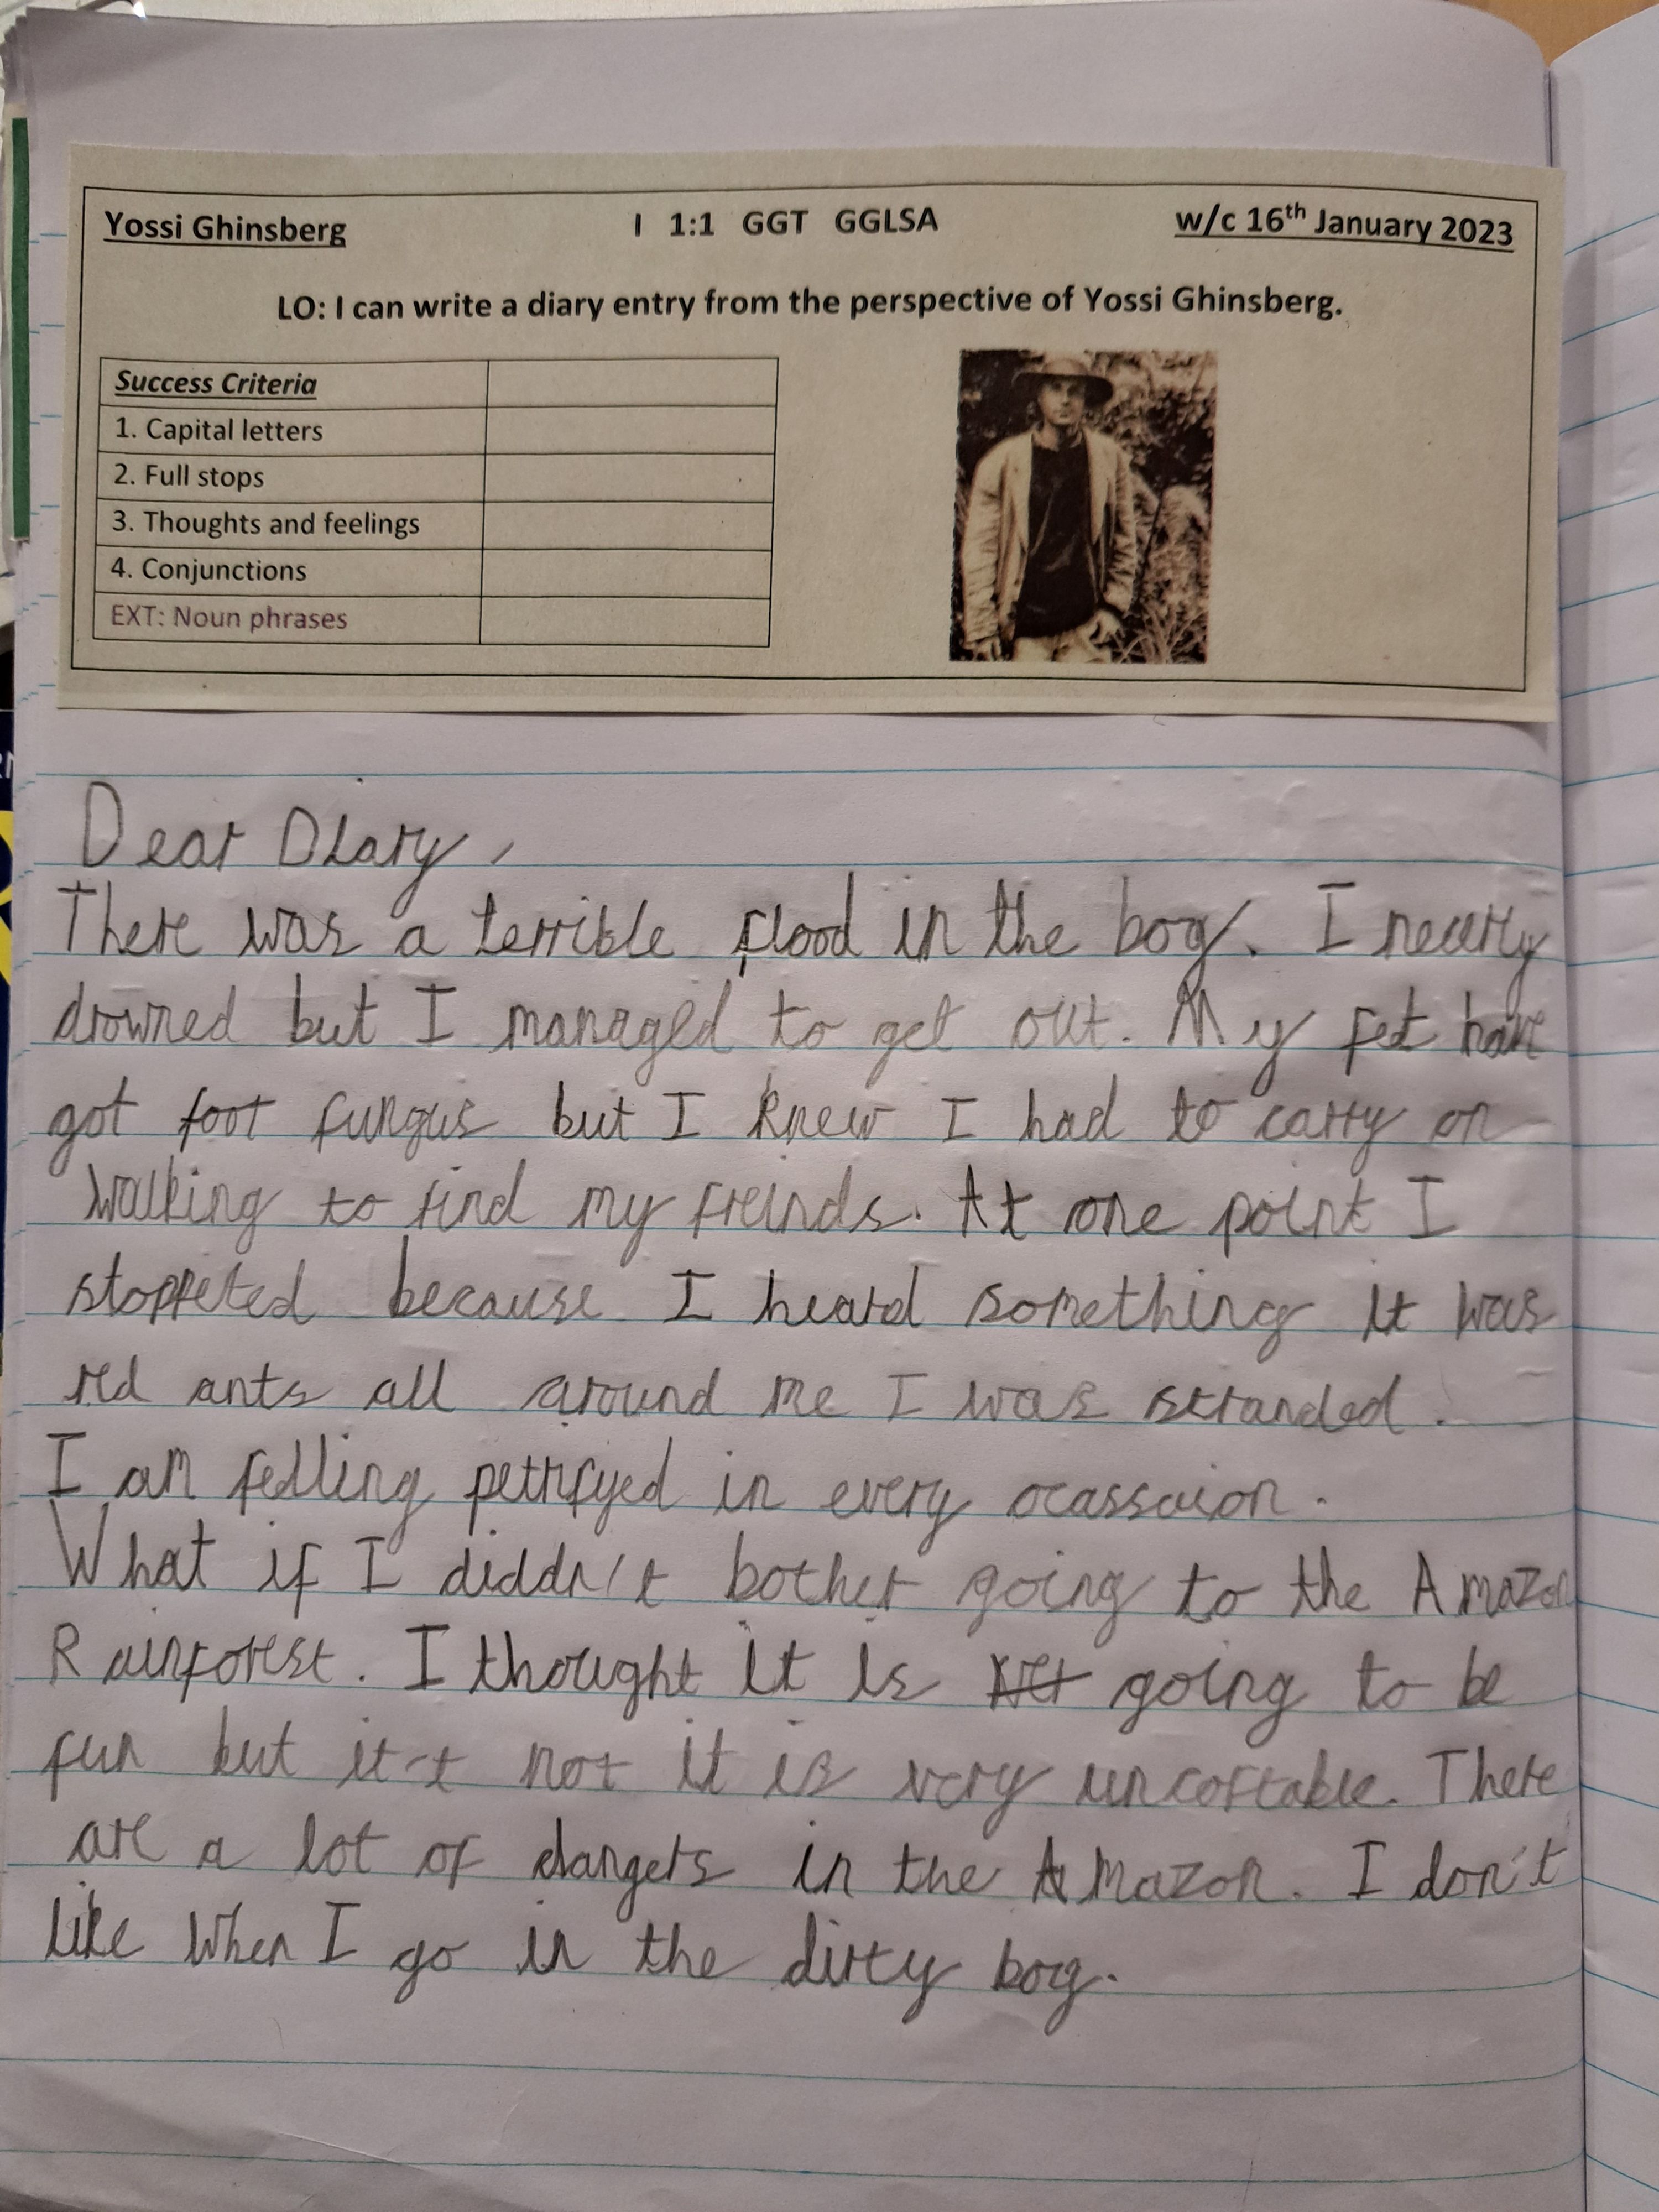 Yossi Ghinsberg I 1:1 GGT GGLSA w/c 16th January 2023
LO: I can write a diary entry from the perspective of Yossi Ghinsberg.
Success Criteria
1. Capital letters
2. Full stops
3. Thoughts and feelings
4. Conjunctions
EXT: Noun phrases
Dear Diary,
There was a terrible flood in the bog. I nearly
drowned but I managed to get out. My fet have
got foot fungus but I knew I had to carry on
walking to find my freinds. At one point I
stoppeted because I heard something it was
red ants all around me I was stranded.
I am felling petrifyed in every ocassaion.
What if I diddn't bother going to the Amazon
Rainforest. I thought it is going to be
fun but it-t not it is very uncoftable. There
are a lot of dangers in the Amazon. I don't
like when I go in the dirty bog.